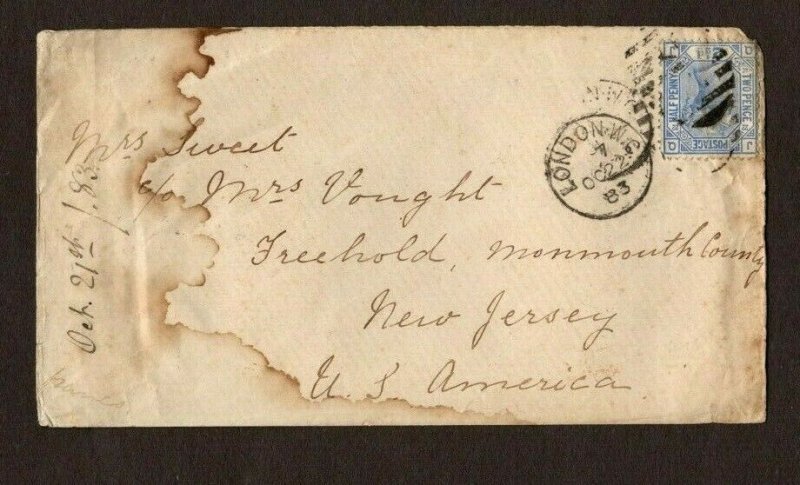 Mrs Sweet
c/o Mrs Vought
Freehold, Monmouth County
New Jersey
U.S America
Oct. 21st /83
LONDON-W
7
OC 22
83
TWO PENCE
HALF PENNY
POSTAGE